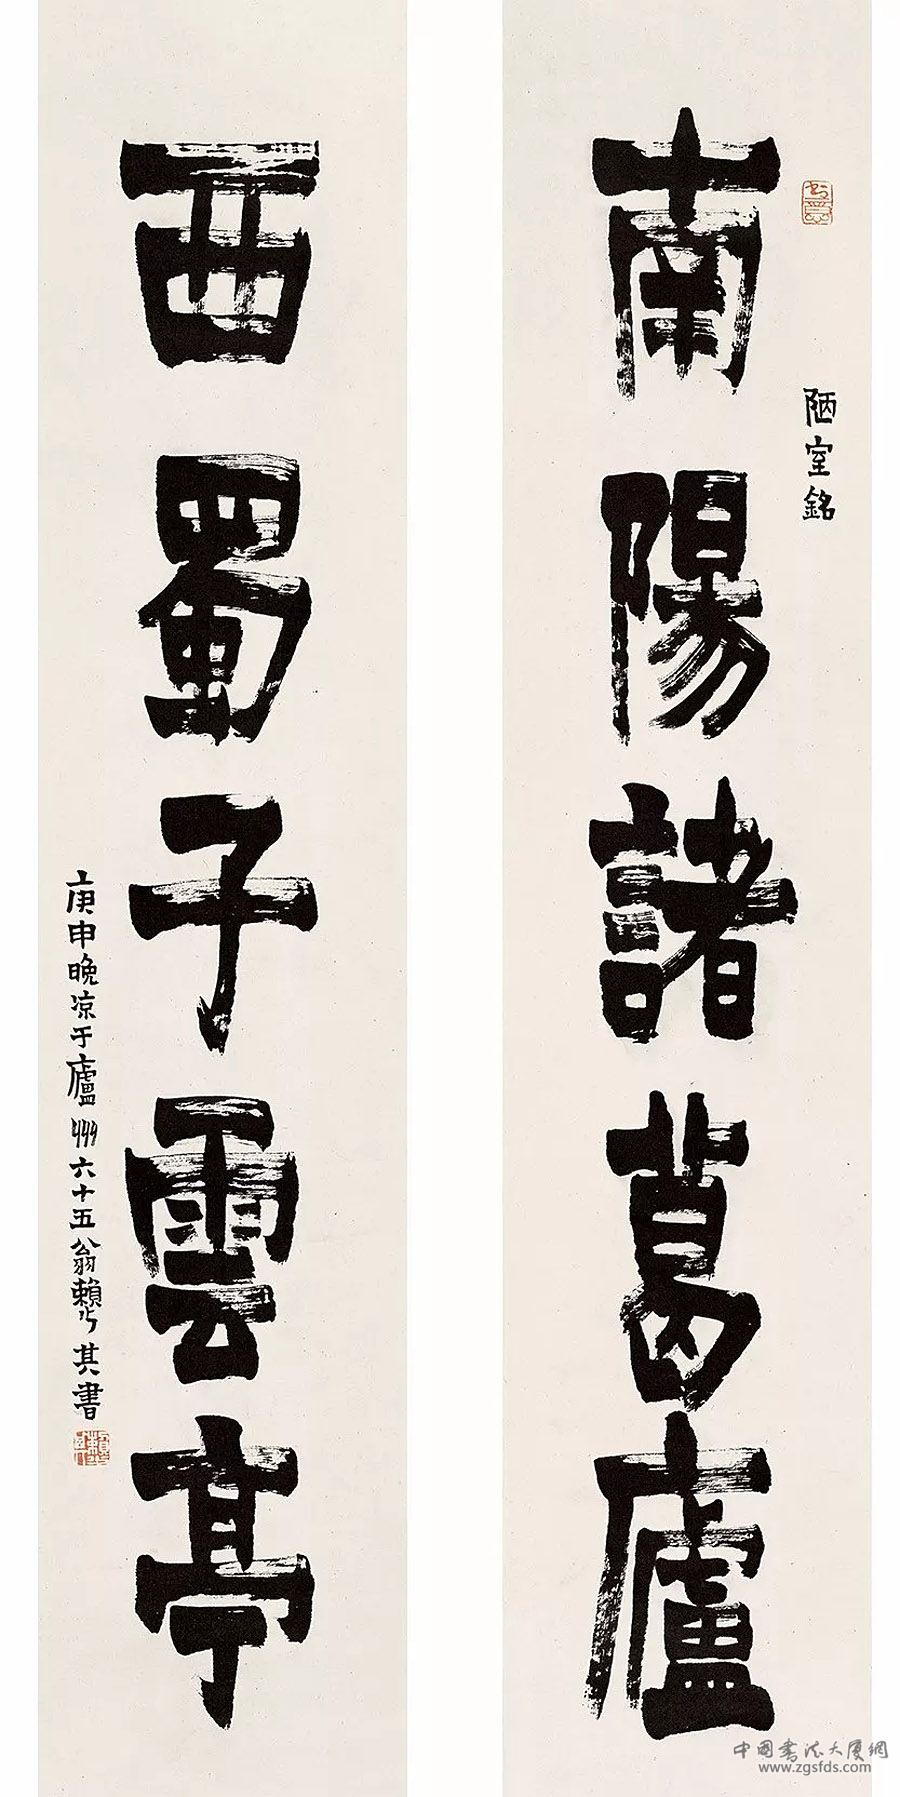 陋室銘
南陽諸葛廬
西蜀子雲亭
庚申晚凉于廬州六十五翁賴少其書
中國書法大廈網
www.zgsfds.com